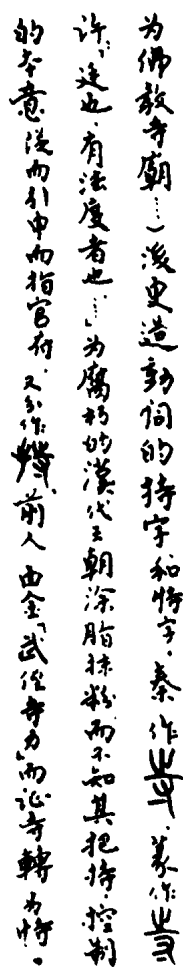 为佛教寺廟……）後更造動词的持字和恃字。秦作寺.篆作寺
许：廷也.有法度者也……」为腐朽的漢代王朝涂脂抹粉而不知其把持.控制
的本意從而引申而指官府.又分作.前人由金「武侄寺力」而证寺轉为恃。